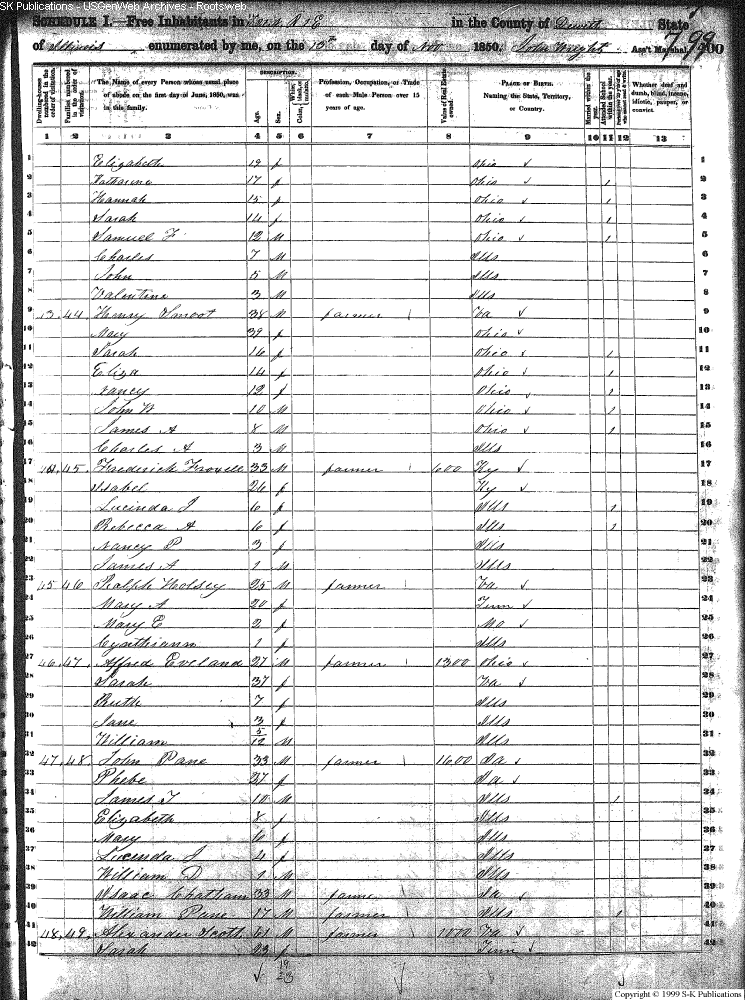 SK Publications - USGenWeb Archives - Rootsweb
799
SCHEDULE I.—Free Inhabitants in R 1 E in the County of Dewitt State
of Illinois enumerated by me, on the 15th day of Nov 1850. John Wright Ass't Marshal. 900
Dwelling-houses numbered in the order of visitation.
Families numbered in the order of visitation.
The Name of every Person whose usual place of abode on the first day of June, 1850, was in this family.
DESCRIPTION.
Age.
Sex.
Profession, Occupation, or Trade of each Male Person over 15 years of age.
Value of Real Estate owned.
PLACE OF BIRTH. Naming the State, Territory, or Country.
Married within the year.
Attended School within the year.
Whether deaf and dumb, blind, insane, idiotic, pauper, or convict.
1 2 3 4 5 6 7 8 9 10 11 12 13
1 Elizabeth 19 f Ohio 1
2 Katharine 17 f Ohio 1 2
3 Hannah 15 f Ohio 1 3
4 Sarah 14 f Ohio 1 4
5 Samuel F 12 M Ohio 1 5
6 Charles 7 M Ills 6
7 John 5 M Ills 7
8 Valentine 3 M Ills 8
9 43 44 Henry Smoot 38 M farmer Va 9
10 Mary 39 f Ohio 10
11 Sarah 16 f Ohio 1 11
12 Eliza 14 f Ohio 1 12
13 Nancy 12 f Ohio 1 13
14 John W 10 M Ohio 1 14
15 James A 8 M Ohio 1 15
16 Charles A 3 M Ills 16
17 44 45 Frederick Trowell 33 M farmer 600 Ky 17
18 Isabel 26 f Ky 18
19 Lucinda J 6 f Ills 1 19
20 Rebecca A 6 f Ills 1 20
21 Nancy P 3 f Ills 21
22 James A 1 M Ills 22
23 45 46 Ralph Holsey 25 M farmer Va 23
24 Mary A 20 f Tenn 24
25 Mary E 2 f Mo 25
26 Cynthiann 1 f Ills 26
27 46 47 Alfred Eveland 27 M farmer 1300 Ohio 27
28 Sarah 37 f Va 28
29 Ruth 7 f Ills 29
30 Jane 3 f Ills 30
31 William 5/12 M Ills 31
32 47 48 John Pane 33 M farmer 1600 Pa 32
33 Phebe 27 f Pa 33
34 James T 10 M Ills 1 34
35 Elizabeth 8 f Ills 35
36 Mary 6 f Ills 36
37 Lucinda J 4 f Ills 37
38 William D 1 M Ills 38
39 Isaac Chatham 33 M farmer Pa 39
40 William Pane 17 M farmer Ills 1 40
41 48 49 Alexander Scott 61 M farmer 1000 Va 41
42 Sarah 23 f Tenn 42
19
23
Copyright © 1999 S-K Publications